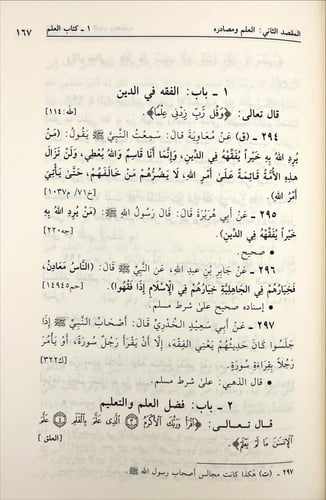 المقصد الثاني: العلم ومصادره ١ - كتاب العلم ١٦٧
١ - باب: الفقه في الدين
قال تعالى: ﴿وَقُل رَّبِّ زِدْنِي عِلْمًا﴾. [طه: ١١٤]
٢٩٤ - (ق) عَنْ مُعَاوِيَةَ قَالَ: سَمِعْتُ النَّبِيَّ ﷺ يَقُولُ: (مَنْ
يُرِدِ اللهُ بِهِ خَيْراً يُفَقِّهْهُ فِي الدِّينِ، وَإِنَّمَا أَنَا قَاسِمٌ وَاللهُ يُعْطِي، وَلَنْ تَزَالَ
هَذِهِ الْأُمَّةُ قَائِمَةً عَلَىٰ أَمْرِ اللهِ، لَا يَضُرُّهُمْ مَنْ خَالَفَهُمْ، حَتَّىٰ يَأْتِيَ
أَمْرُ اللهِ). [خ٧١/ م١٠٣٧]
٢٩٥ - عَنْ أَبِي هُرَيْرَةَ قَالَ: قَالَ رَسُولُ اللهِ ﷺ: (مَنْ يُرِدِ اللهُ بِهِ
خَيْراً يُفَقِّهْهُ فِي الدِّينِ). [جه٢٢٠]
• صحيح.
٢٩٦ - عَنْ جَابِرِ بْنِ عَبْدِ اللهِ، عَنِ النَّبِيِّ ﷺ قَالَ: (النَّاسُ مَعَادِنُ،
فَخِيَارُهُمْ فِي الْجَاهِلِيَّةِ خِيَارُهُمْ فِي الْإِسْلَامِ إِذَا فَقُهُوا). [حم١٤٩٤٥]
• إسناده صحيح على شرط مسلم.
٢٩٧ - عَنْ أَبِي سَعِيدٍ الْخُدْرِيِّ قَالَ: أَصْحَابُ النَّبِيِّ ﷺ إِذَا
جَلَسُوا كَانَ حَدِيثُهُمْ يَعْنِي الْفِقْهَ، إِلَّا أَنْ يَقْرَأَ رَجُلٌ سُورَةً، أَوْ يَأْمُرَ
رَجُلاً بِقِرَاءَةِ سُورَةٍ. [ك٣٢٢]
• قال الذهبي: على شرط مسلم.
٢ - باب: فضل العلم والتعليم
قال تعالى: ﴿اقْرَأْ وَرَبُّكَ الْأَكْرَمُ ۝٣ الَّذِي عَلَّمَ بِالْقَلَمِ ۝٤ عَلَّمَ
الْإِنسَانَ مَا لَمْ يَعْلَمْ﴾. [العلق]
٢٩٧ - (ت) هكذا كانت مجالس أصحاب رسول الله ﷺ.